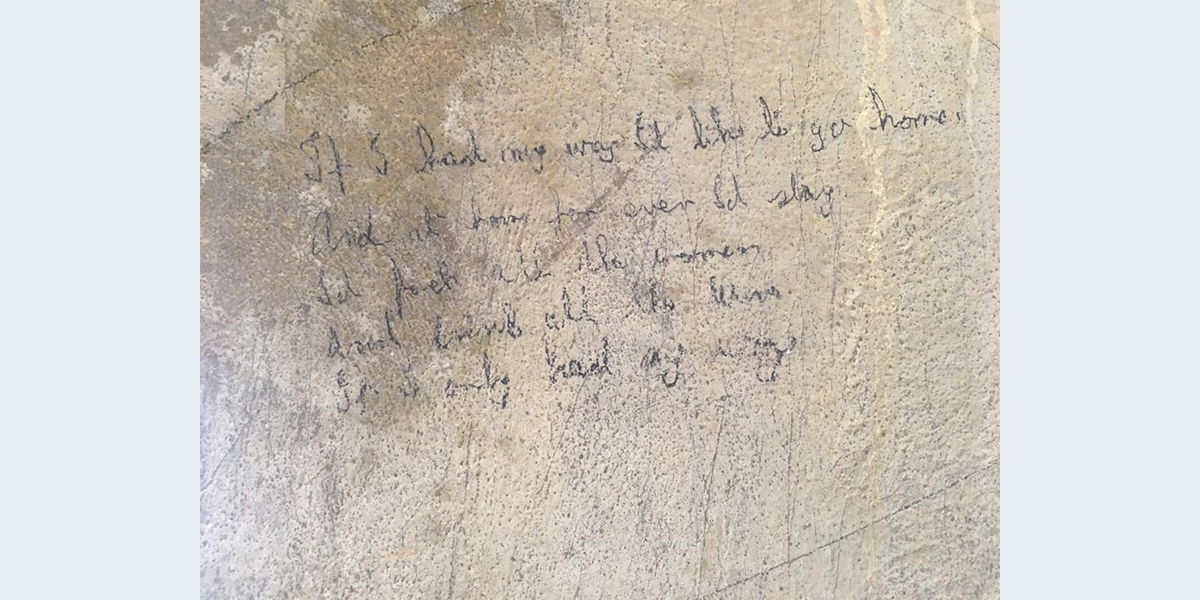 If I had my way I'd like to go home.
And at home for ever I'd stay
I'd fuck all the women
And drink all the
If I only had my way